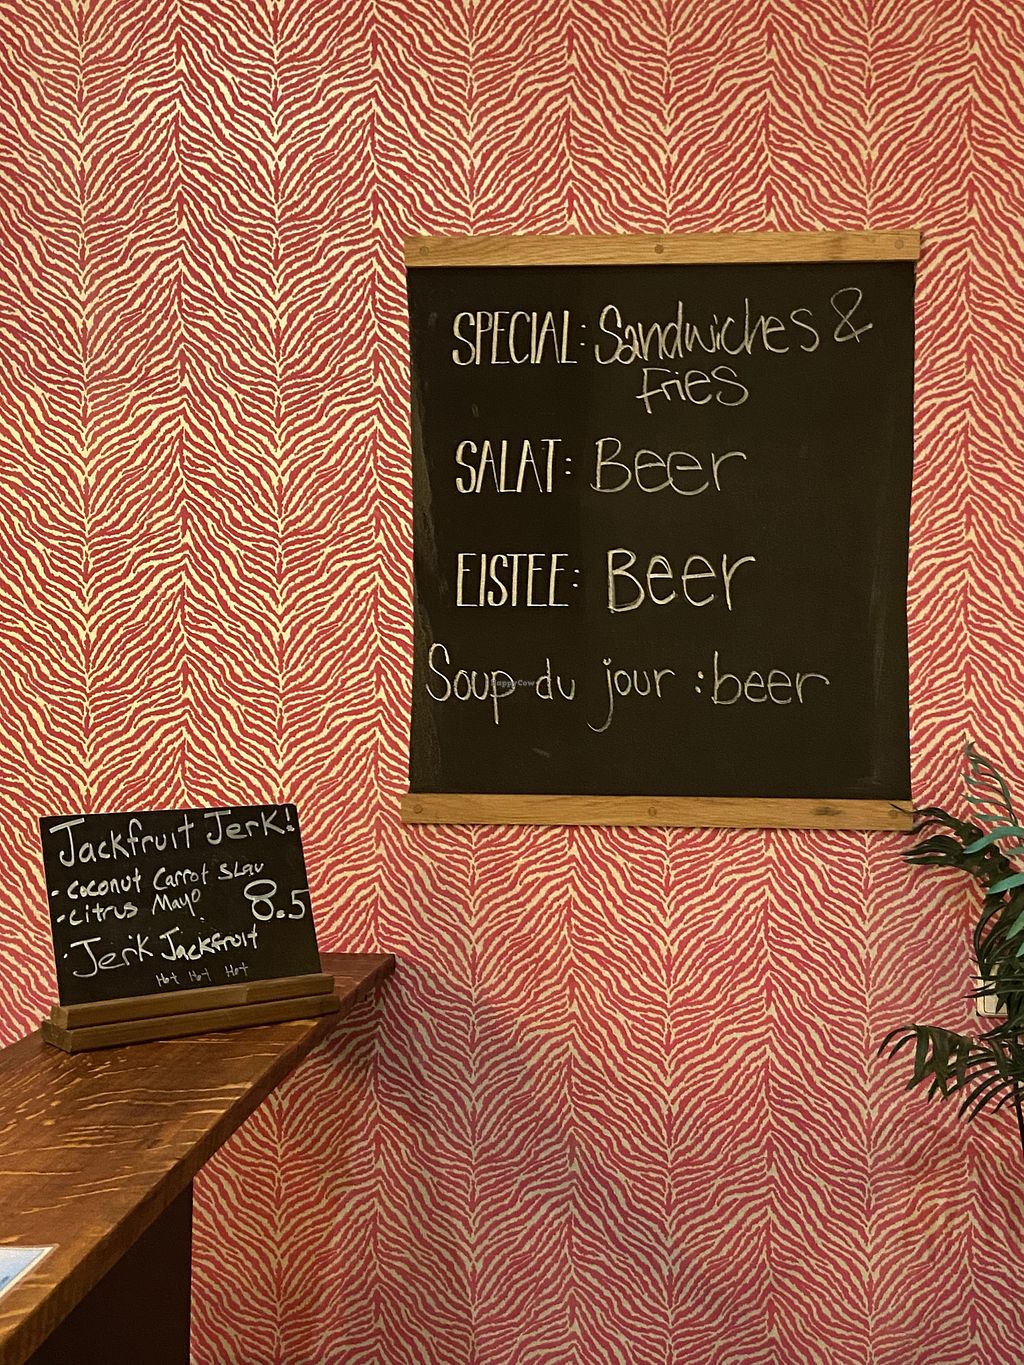 SPECIAL: Sandwiches &
Fries
SALAT: Beer
EISTEE: Beer
Soup du jour : beer
HappyCow
Jackfruit Jerk!
- Coconut Carrot Slaw
- Citrus Mayo
8.5
· Jerk Jackfruit
Hot Hot Hot